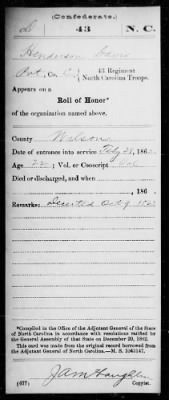 (Confederate.)
43 N. C.
Henderson
Pvt., Co. C, 43 Regiment
North Carolina Troops.
Appears on a
Roll of Honor*
of the organization named above.
County Wilson
Date of entrance into service Feby 25, 186
Age 22; Vol. or Conscript Vol
Died or discharged, and when
, 186 .
Remarks: Deserted Oct 9 1863
*Compiled in the Office of the Adjutant General of the State
of North Carolina in accordance with resolutions ratified by
the General Assembly of that State on December 20, 1862.
This card was made from the original record borrowed from
the Adjutant General of North Carolina.—M. S. 1061147.
(637) Copyist.